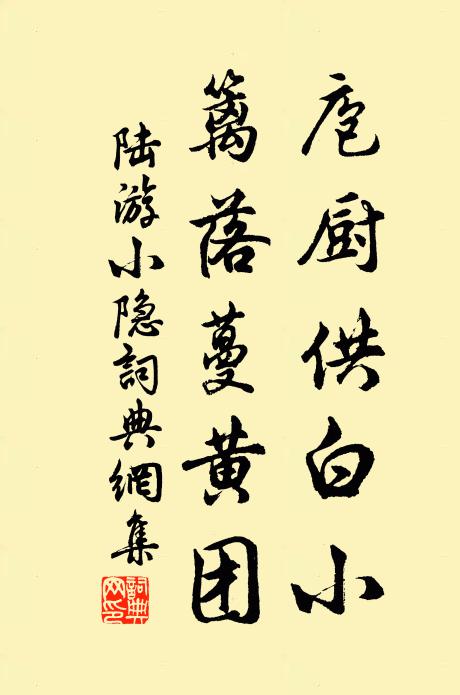 庖厨供白小
篱落蔓黄团
陆游小隐詞典網集
詞典网印